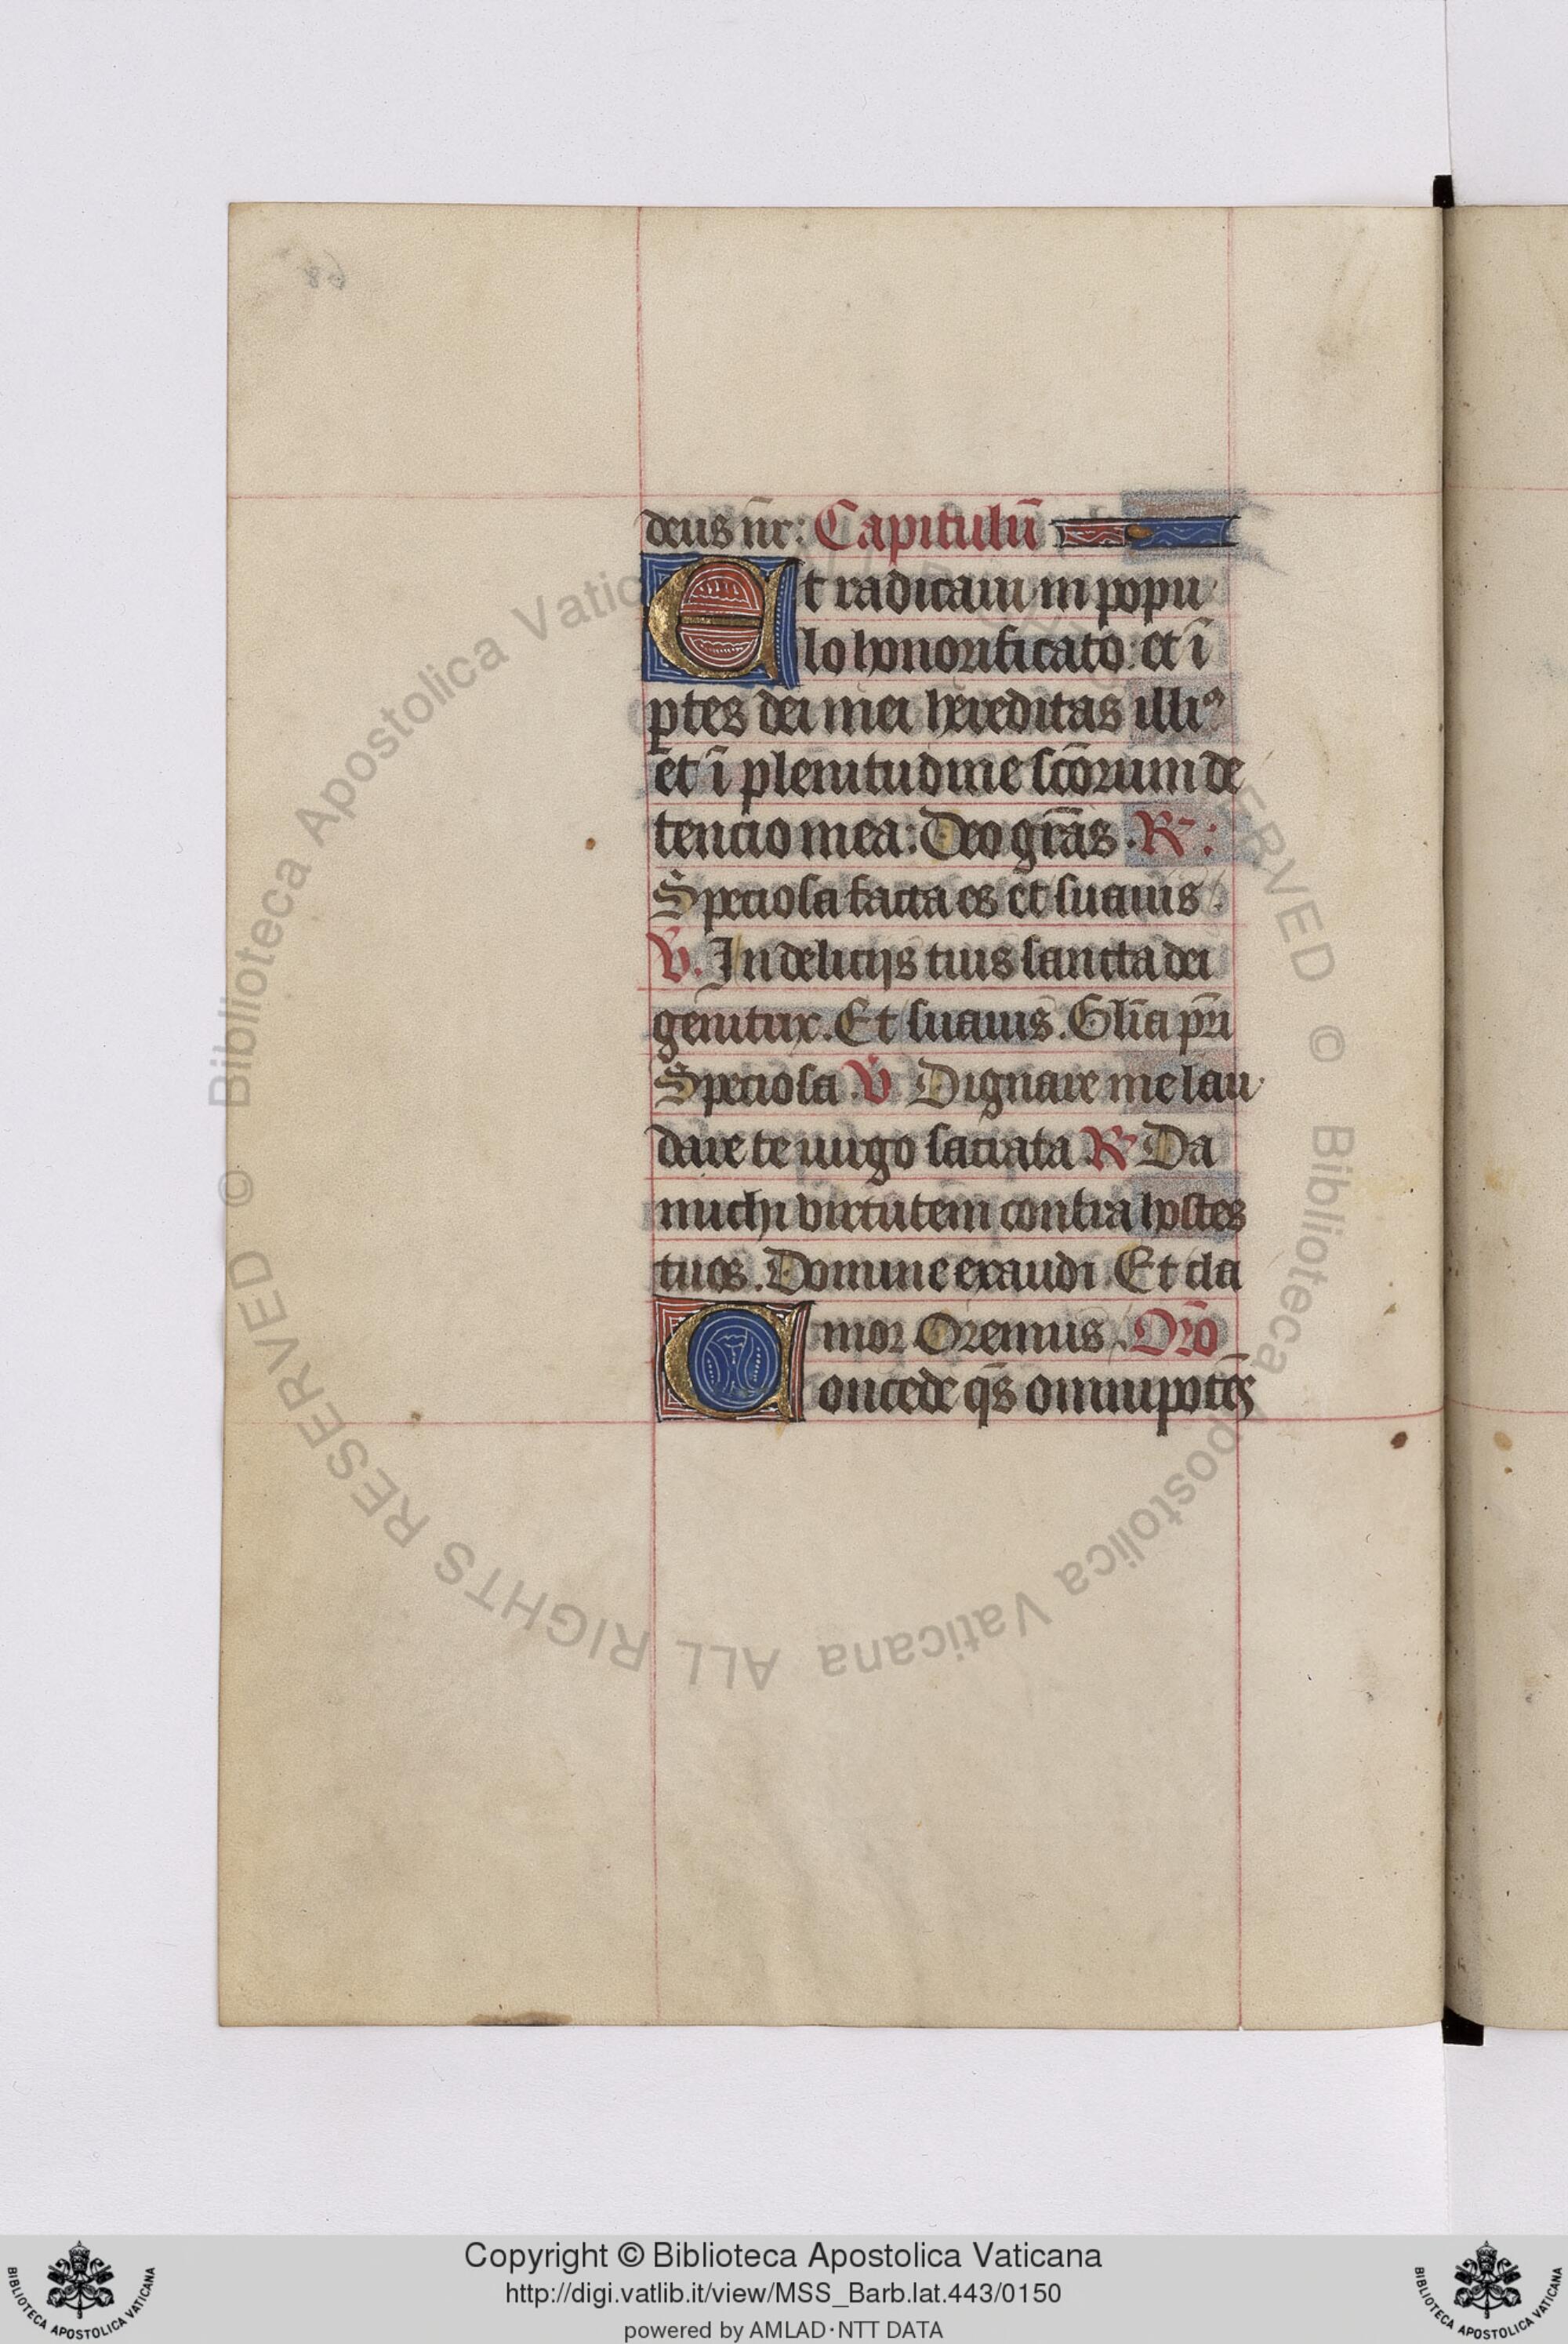 deus nr̄: Capitulū
Et radicaui in popu
lo honorificato: et ī
ꝑtes dei mei hereditas illiꝰ
et ī plenitudine sc̄orum de
tencio mea: Deo gr̄as. R̄:
Speciosa facta es et suauis.
V̄. In delicijs tuis sancta dei
genitrix. Et suauis. Gl̄ia pr̄i
Speciosa. V̄ Dignare me lau
dare te uirgo sacrata R̄ Da
michi virtutem contra hostes
tuos. Domine exaudi. Et cla
mor Oremus. Or̄o
Concede qs̄ omnipotēs
© Biblioteca Apostolica Vaticana ALL RIGHTS RESERVED
Copyright © Biblioteca Apostolica Vaticana
http://digi.vatlib.it/view/MSS_Barb.lat.443/0150
powered by AMLAD·NTT DATA
BIBLIOTECA APOSTOLICA VATICANA
BIBLIOTECA APOSTOLICA VATICANA